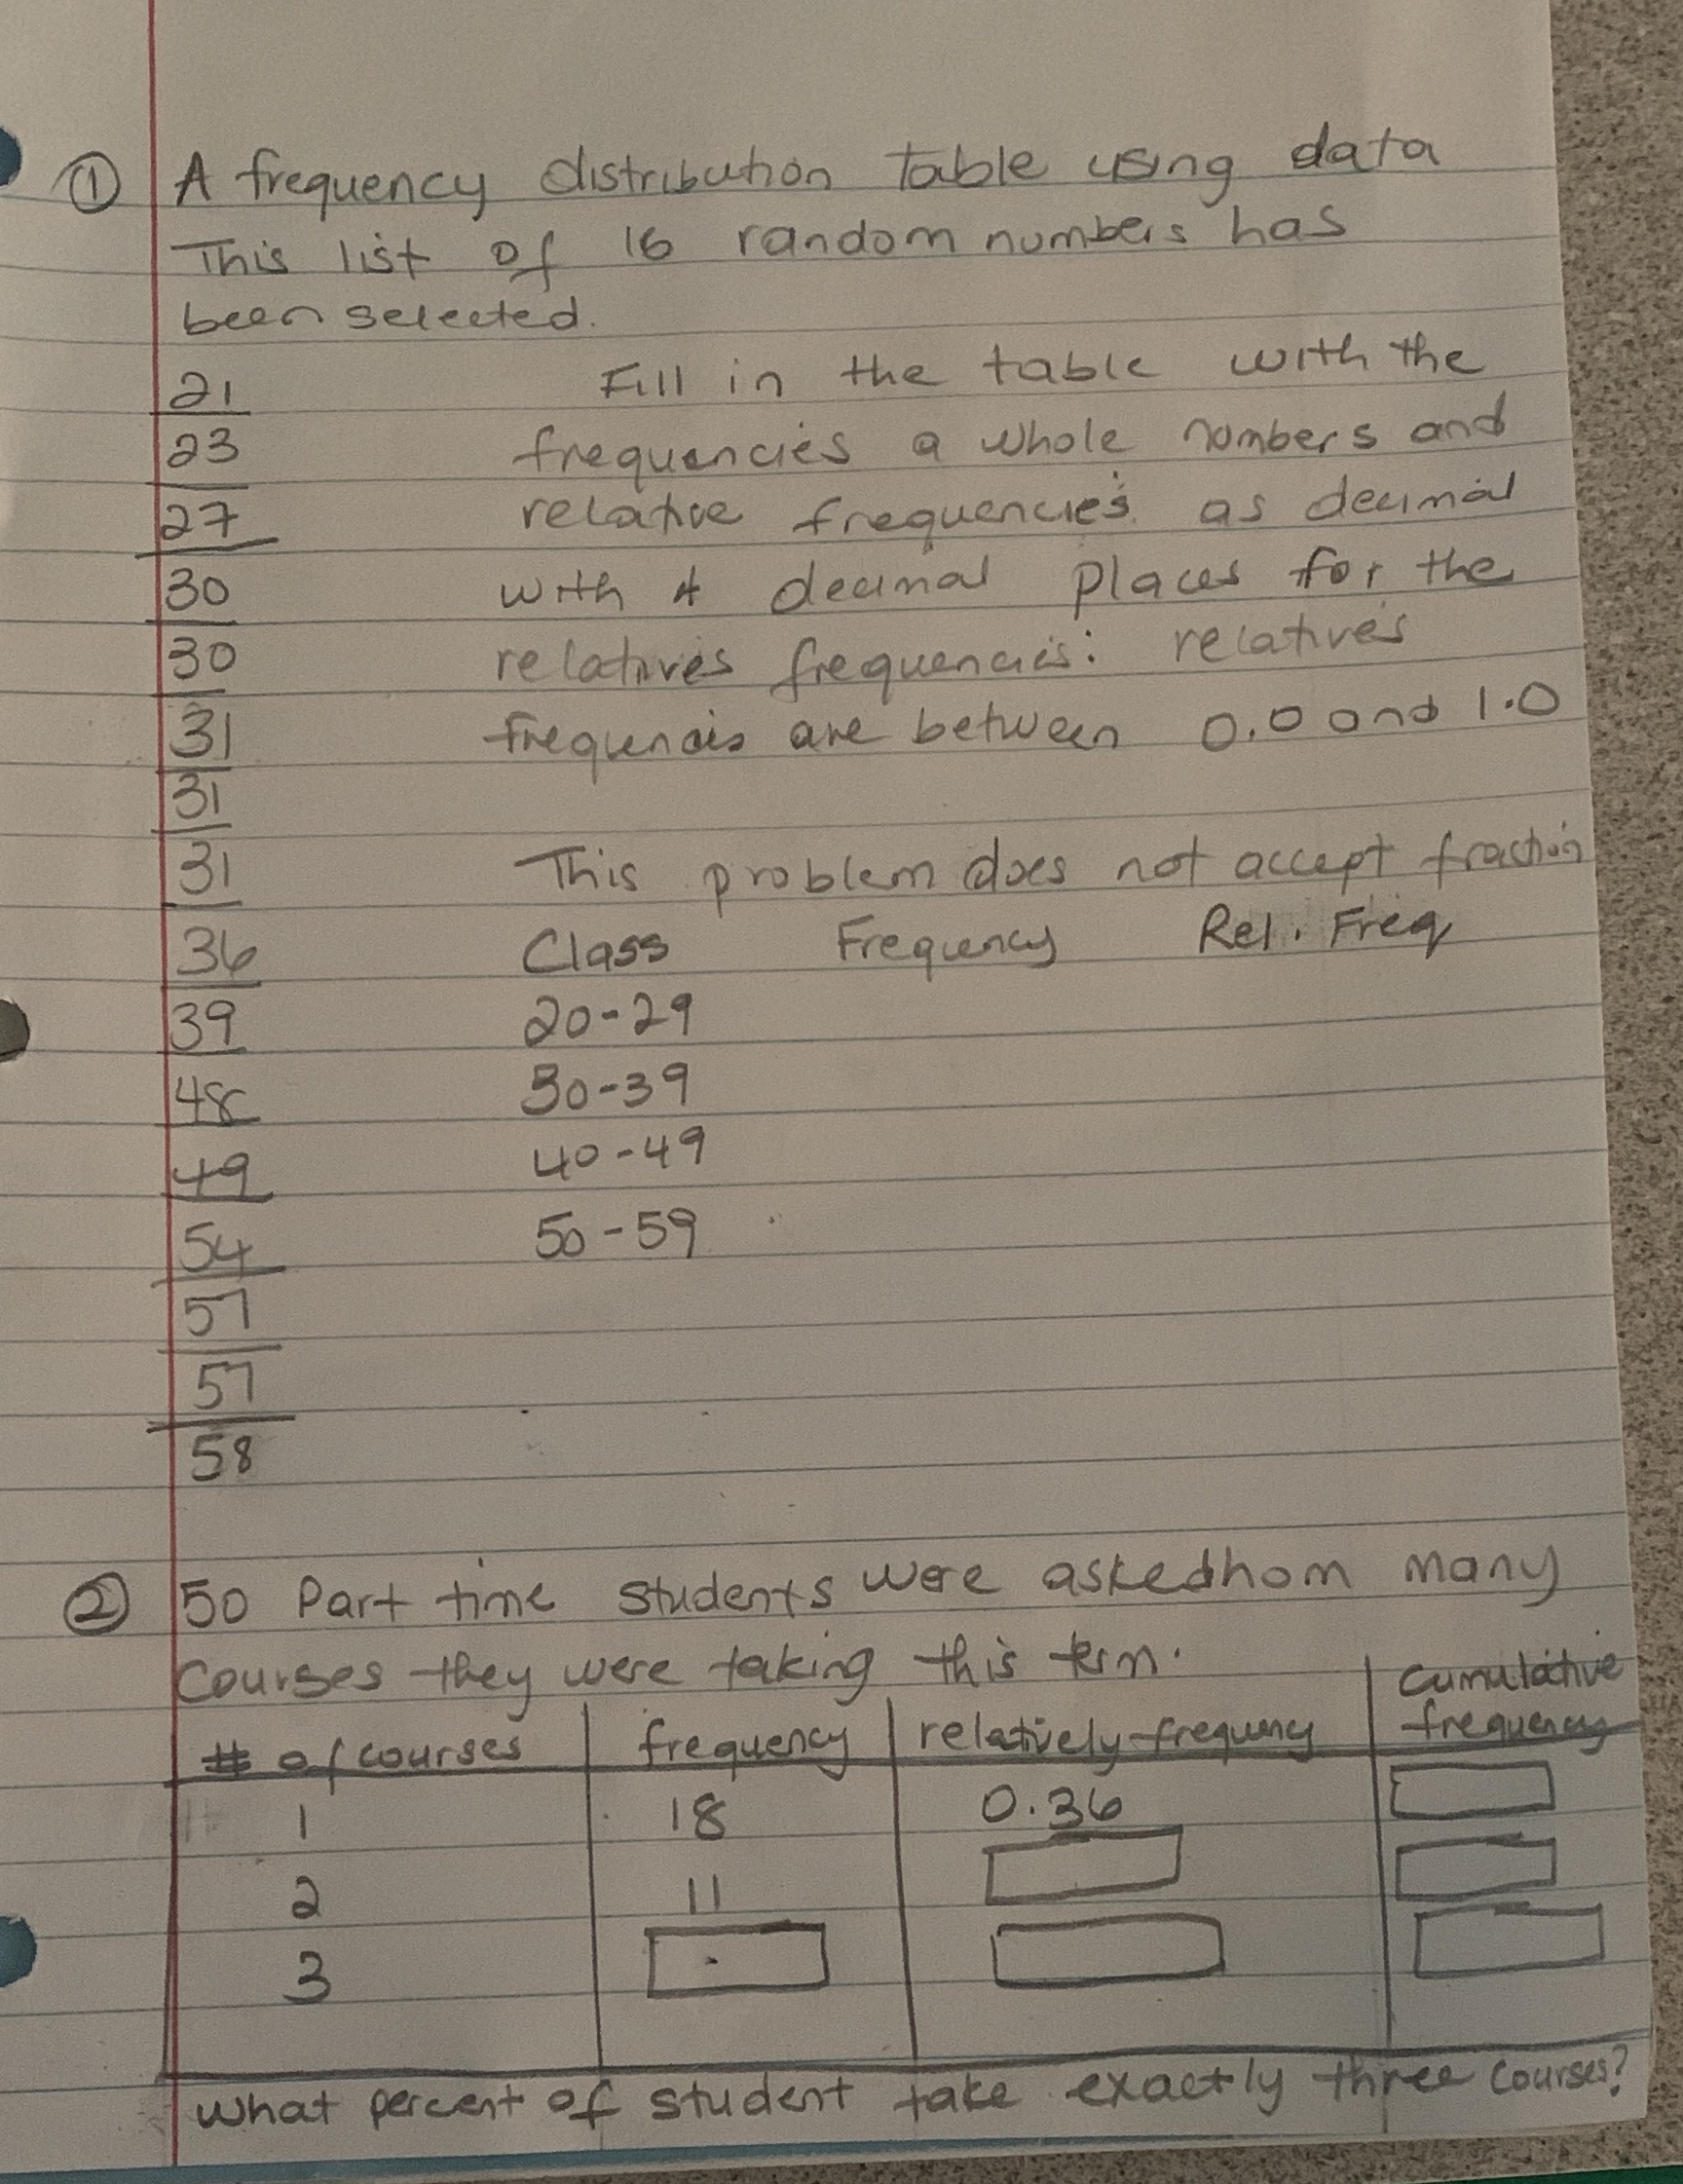 ① A frequency distribution table using data
This list of 16 random numbers has
been selected.
21 Fill in the table with the
23 frequencies a whole numbers and
27 relative frequencies as decimal
30 with 4 decimal places for the
30 relatives frequencies: relatives
31 frequencies are between 0.0 and 1.0
31
31 This problem does not accept fraction
36 Class Frequency Rel. Freq
39 20-29
48 30-39
49 40-49
54 50-59
57
57
58
② 50 Part time students were asked hom many
courses they were taking this term.
# of courses frequency relatively frequency cumulative frequency
1 18 0.36
2 11
3
What percent of student take exactly three courses?